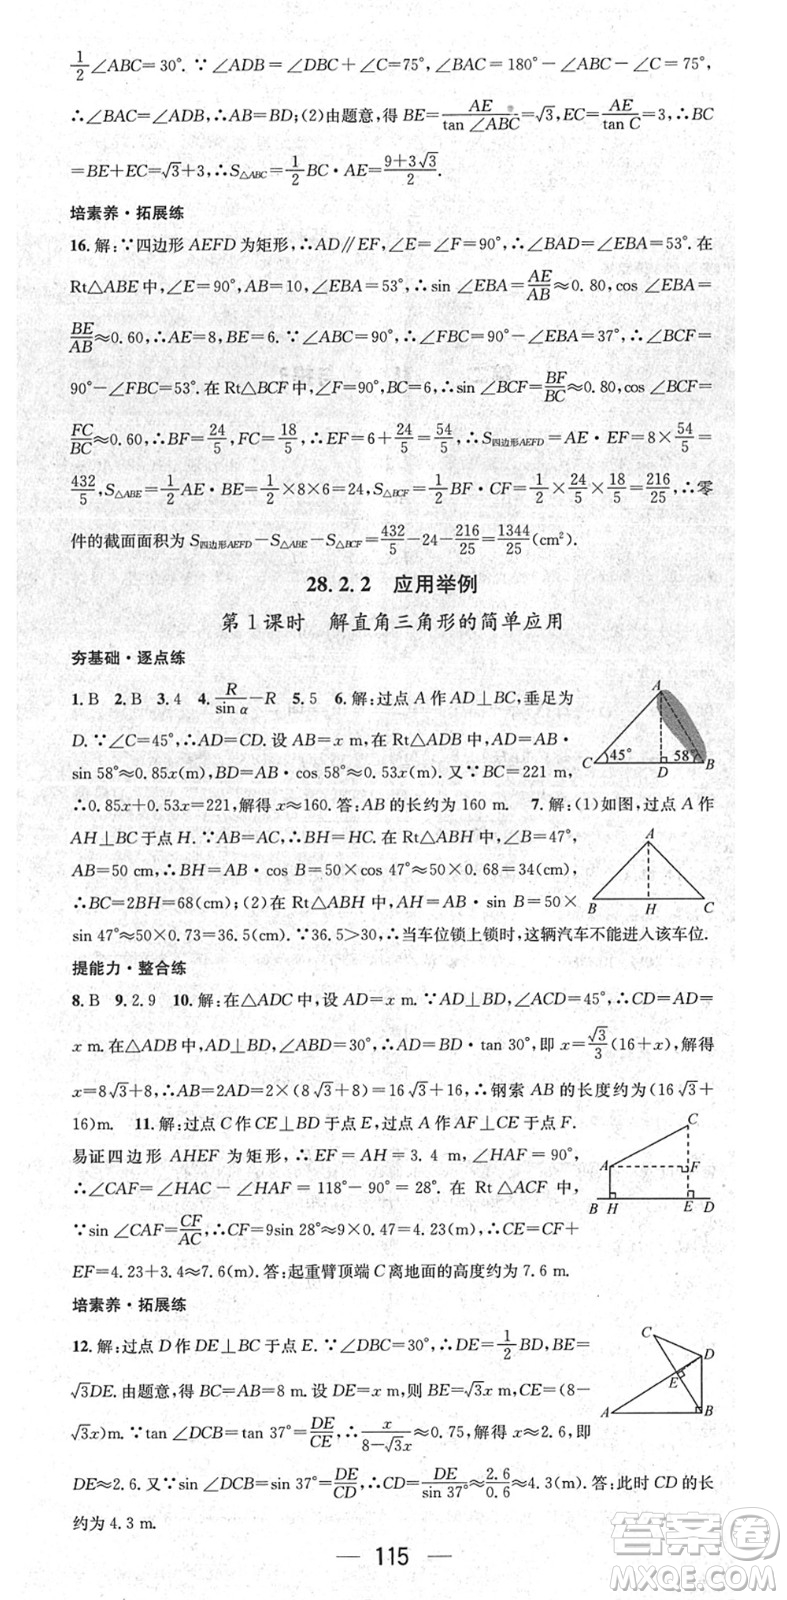 1/2∠ABC=30°.∵∠ADB=∠DBC+∠C=75°,∠BAC=180°-∠ABC-∠C=75°,
∴∠BAC=∠ADB,∴AB=BD;(2)由题意,得BE=AE/tan∠ABC=√3,EC=AE/tan C=3,∴BC
=BE+EC=√3+3,∴S△ABC=1/2BC·AE=(9+3√3)/2.
培素养·拓展练
16.解:∵四边形AEFD为矩形,∴AD∥EF,∠E=∠F=90°,∴∠BAD=∠EBA=53°.在
Rt△ABE中,∠E=90°,AB=10,∠EBA=53°,∴sin∠EBA=AE/AB≈0.80,cos∠EBA=
BE/AB≈0.60,∴AE=8,BE=6.∵∠ABC=90°,∴∠FBC=90°-∠EBA=37°,∴∠BCF=
90°-∠FBC=53°.在Rt△BCF中,∠F=90°,BC=6,∴sin∠BCF=BF/BC≈0.80,cos∠BCF=
FC/BC≈0.60,∴BF=24/5,FC=18/5,∴EF=6+24/5=54/5,∴S四边形AEFD=AE·EF=8×54/5=
432/5,S△ABE=1/2AE·BE=1/2×8×6=24,S△BCF=1/2BF·CF=1/2×24/5×18/5=216/25,∴零
件的截面面积为S四边形AEFD-S△ABE-S△BCF=432/5-24-216/25=1344/25(cm²).
28.2.2 应用举例
第1课时 解直角三角形的简单应用
夯基础·逐点练
1.B 2.B 3.4 4.R/sin α-R 5.5 6.解:过点A作AD⊥BC,垂足为
D.∵∠C=45°,∴AD=CD.设AB=x m,在Rt△ADB中,AD=AB·
sin 58°≈0.85x(m),BD=AB·cos 58°≈0.53x(m).又∵BC=221 m,
∴0.85x+0.53x=221,解得x≈160.答:AB的长约为160 m. 7.解:(1)如图,过点A作
AH⊥BC于点H.∵AB=AC,∴BH=HC.在Rt△ABH中,∠B=47°,
AB=50 cm,∴BH=AB·cos B=50×cos 47°≈50×0.68=34(cm),
∴BC=2BH=68(cm);(2)在Rt△ABH中,AH=AB·sin B=50×
sin 47°≈50×0.73=36.5(cm).∵36.5>30,∴当车位锁上锁时,这辆汽车不能进入该车位.
提能力·整合练
8.B 9.2.9 10.解:在△ADC中,设AD=x m.∵AD⊥BD,∠ACD=45°,∴CD=AD=
x m.在△ADB中,AD⊥BD,∠ABD=30°,∴AD=BD·tan 30°,即x=√3/3(16+x),解得
x=8√3+8,∴AB=2AD=2×(8√3+8)=16√3+16,∴钢索AB的长度约为(16√3+
16)m. 11.解:过点C作CE⊥BD于点E,过点A作AF⊥CE于点F.
易证四边形AHEF为矩形,∴EF=AH=3.4 m,∠HAF=90°,
∴∠CAF=∠HAC-∠HAF=118°-90°=28°.在Rt△ACF中,
∵sin∠CAF=CF/AC,∴CF=9sin 28°≈9×0.47=4.23(m),∴CE=CF+
EF=4.23+3.4≈7.6(m).答:起重臂顶端C离地面的高度约为7.6 m.
培素养·拓展练
12.解:过点D作DE⊥BC于点E.∵∠DBC=30°,∴DE=1/2BD,BE=
√3DE.由题意,得BC=AB=8 m.设DE=x m,则BE=√3x m,CE=(8-
√3x)m.∵tan∠DCB=tan 37°=DE/CE,∴x/(8-√3x)≈0.75,解得x≈2.6,即
DE≈2.6.又∵sin∠DCB=sin 37°=DE/CD,∴CD=DE/sin 37°≈2.6/0.6≈4.3(m).答:此时CD的长
约为4.3 m.
115
A
C 45° 58° B
D
A
B H C
C
A F
B H E D
C
D
E
A B
答案圈
MXQE.COM